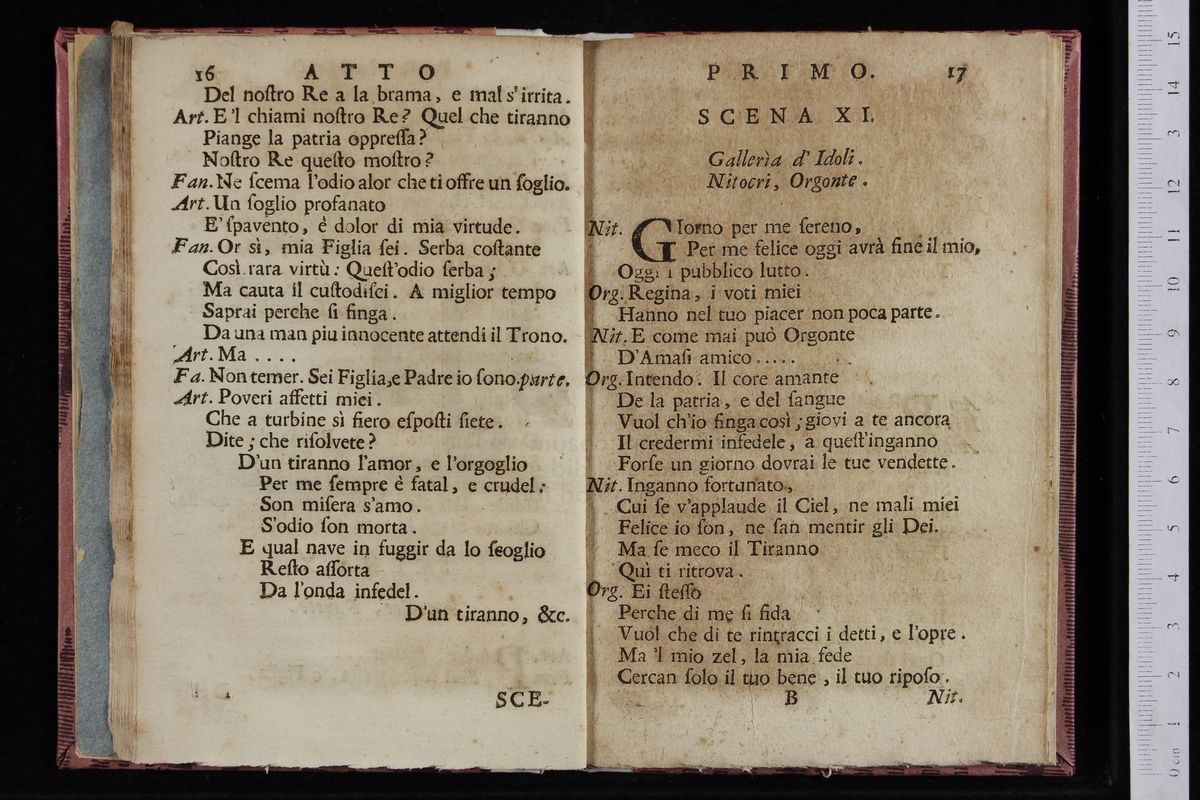 16 ATTO
Del noſtro Re a la brama, e mal s'irrita.
Art. E 'l chiami noſtro Re? Quel che tiranno
Piange la patria oppreſſa?
Noſtro Re queſto moſtro?
Fan. Ne ſcema l'odio alor che ti offre un ſoglio.
Art. Un ſoglio profanato
E' ſpavento, é dolor di mia virtude.
Fan. Or sì, mia Figlia ſei. Serba coſtante
Così rara virtù: Queſt'odio ſerba;
Ma cauta il cuſtodiſci. A miglior tempo
Saprai perche ſi finga.
Da una man piu innocente attendi il Trono.
Art. Ma ....
Fa. Non temer. Sei Figlia, e Padre io ſono. parte.
Art. Poveri affetti miei.
Che a turbine sì fiero eſpoſti ſiete.
Dite; che riſolvete?
D'un tiranno l'amor, e l'orgoglio
Per me ſempre è fatal, e crudel:
Son miſera s'amo.
S'odio ſon morta.
E qual nave in fuggir da lo ſeoglio
Reſto aſſorta
Da l'onda infedel.
D'un tiranno, &c.
SCE-
PRIMO. 17
SCENA XI.
Gallerìa d' Idoli.
Nitocri, Orgonte.
Nit. GIorno per me ſereno,
Per me felice oggi avrà fine il mio,
Oggi i pubblico lutto.
Org. Regina, i voti miei
Hanno nel tuo piacer non poca parte.
Nit. E come mai può Orgonte
D'Amaſi amico .....
Org. Intendo. Il core amante
De la patria, e del ſangue
Vuol ch'io finga così; giovi a te ancora
Il credermi infedele, a queſt'inganno
Forſe un giorno dovrai le tue vendette.
Nit. Inganno fortunato,
Cui ſe v'applaude il Ciel, ne mali miei
Felice io ſon, ne ſan mentir gli Dei.
Ma ſe meco il Tiranno
Quì ti ritrova.
Org. Ei ſteſſo
Perche di me ſi fida
Vuol che di te rintracci i detti, e l'opre.
Ma 'l mio zel, la mia fede
Cercan ſolo il tuo bene, il tuo ripoſo.
B Nit.